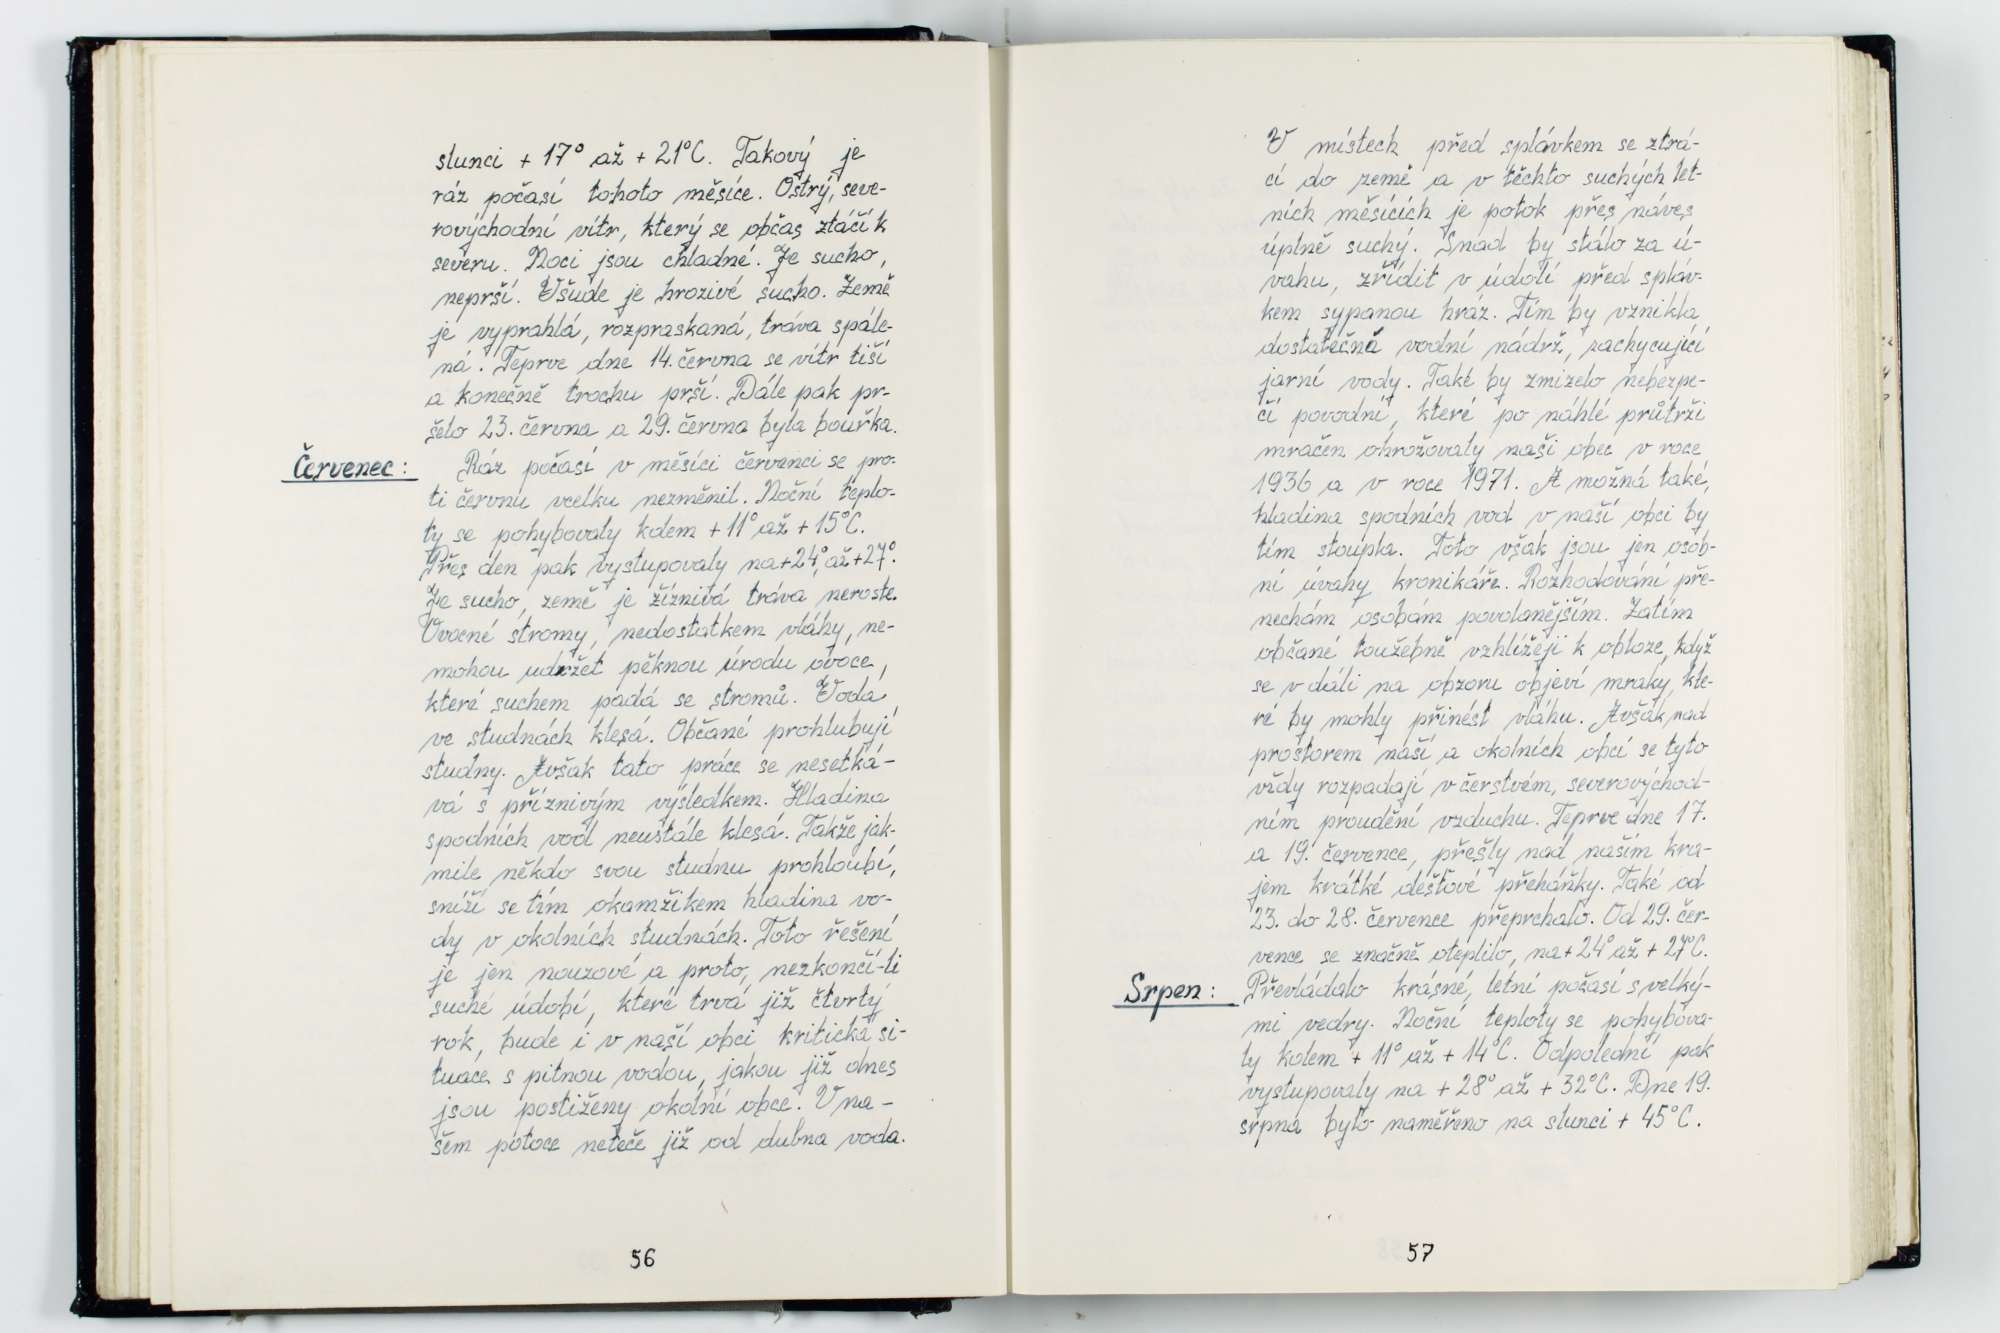 slunci + 17° až + 21°C. Takový je
ráz počasí tohoto měsíce. Ostrý, seve-
rovýchodní vítr, který se občas ztáčí k
severu. Noci jsou chladné. Je sucho,
neprší. Všude je hrozivé sucho. Země
je vyprahlá, rozpraskaná, tráva spále-
ná. Teprve dne 14. června se vítr tiší
a konečně trochu prší. Dále pak pr-
šelo 23. června a 29. června byla bouřka.
Červenec: Ráz počasí v měsíci červenci se pro-
ti červnu vcelku nezměnil. Noční teplo-
ty se pohybovaly kolem + 11° až + 15°C.
Přes den pak vystupovaly na +24° až +27°.
Je sucho, země je žíznivá tráva neroste.
Ovocné stromy, nedostatkem vláhy, ne-
mohou udržet pěknou úrodu ovoce,
které suchem padá se stromů. Voda
ve studnách klesá. Občané prohlubují
studny. Avšak tato práce se nesetká-
vá s příznivým výsledkem. Hladina
spodních vod neustále klesá. Takže jak-
mile někdo svou studnu prohloubí,
sníží se tím okamžikem hladina vo-
dy v okolních studnách. Toto řešení
je jen nouzové a proto, nezkončí-li
suché údobí, které trvá již čtvrtý
rok, bude i v naší obci kritická si-
tuace s pitnou vodou, jakou již dnes
jsou postiženy okolní obce. V na-
šem potoce neteče již od dubna voda.
56
V místech před splávkem se ztrá-
cí do země a v těchto suchých let-
ních měsících je potok přes náves
úplně suchý. Snad by stálo za ú-
vahu, zřídit v údolí před spláv-
kem sypanou hráz. Tím by vznikla
dostatečná vodní nádrž, zachycující
jarní vody. Také by zmizelo nebezpe-
čí povodní, které po náhlé průtrži
mračen ohrožovaly naši obec v roce
1936 a v roce 1971. A možná také,
hladina spodních vod v naší obci by
tím stoupla. Toto však jsou jen osob-
ní úvahy kronikáře. Rozhodování pře-
nechám osobám povolanějším. Zatím
občané toužebně vzhlížejí k obloze, když
se v dáli na obzoru objeví mraky, kte-
ré by mohly přinést vláhu. Avšak nad
prostorem naší a okolních obcí se tyto
vždy rozpadají v čerstvém, severovýchod-
ním proudění vzduchu. Teprve dne 17.
a 19. července, přešly nad naším kra-
jem krátké dešťové přeháňky. Také od
23. do 28. července přeprchalo. Od 29. čer-
vence se značně oteplilo, na +24° až + 27°C.
Srpen: Převládalo krásné, letní počasí s velký-
mi vedry. Noční teploty se pohybova-
ly kolem + 11° až + 14°C. Odpolední pak
vystupovaly na + 28° až + 32°C. Dne 19.
srpna bylo naměřeno na slunci + 45°C.
57